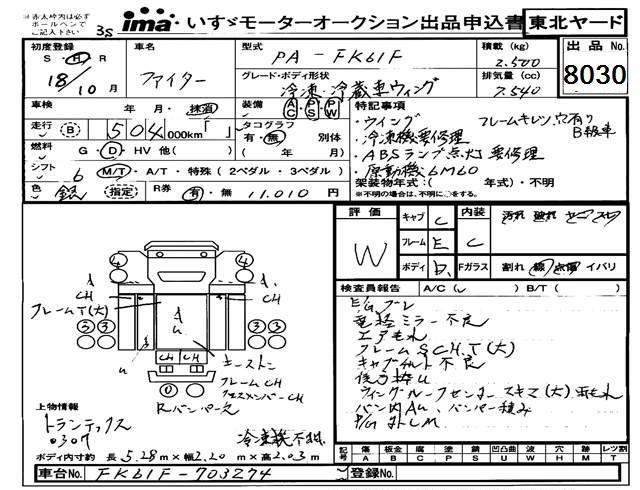 ※赤太枠内は必ず
ボールペンで
ご記入下さい 3S ima いすゞモーターオークション出品申込書 東北ヤード
初度登録 車名 型式 PA-FK61F 積載(kg) 2.500 出品No.
S H R 18/10月 ファイター グレード・ボディ形状 冷凍・冷蔵車ウィング 排気量(cc) 7.540 8030
車検 年・月・抹消 装備 AC PS PW 特記事項
走行 B 504,000km タコグラフ 有・無 別体 ・ウィング フレームキレツ、穴有り
燃料 G・D・HV 他( ) ( 年 月) ・冷凍機要修理 B級車
シフト 6 M/T・A/T・特殊(2ペダル・3ペダル) ・ABSランプ点灯要修理
色 銀 (指定) R券 有・無 11.010円 ・原動機6M60
架装物年式:( 年式)・不明
※不明の場合は、不明に○をする。
評価 W キャブ C 内装 C 汚れ 破れ
フレーム E
ボディ D Fガラス 割れ 線 点傷 イバリ
検査員報告 A/C( ) B/T( )
電格ミラー不良
エアもれ
フレームSCH、T(大)
キャブチルト不良
後方枠U
4 4
A A
CH CH
フレームT(大) A
U
3 3 3 3
U CH CH
フレームCH
クロスメンバーCH
0
Rバンパー欠
上物情報
トランテックス
0307
ボディ内寸約 長5.28m×幅2.20m×高2.03m
記号 傷 A 板金 B 腐 C 塗 P 錆 S 凹凸曲 U 波 W 穴 H 跡 M レツ割 T
車台No. FK61F-703274 登録No.